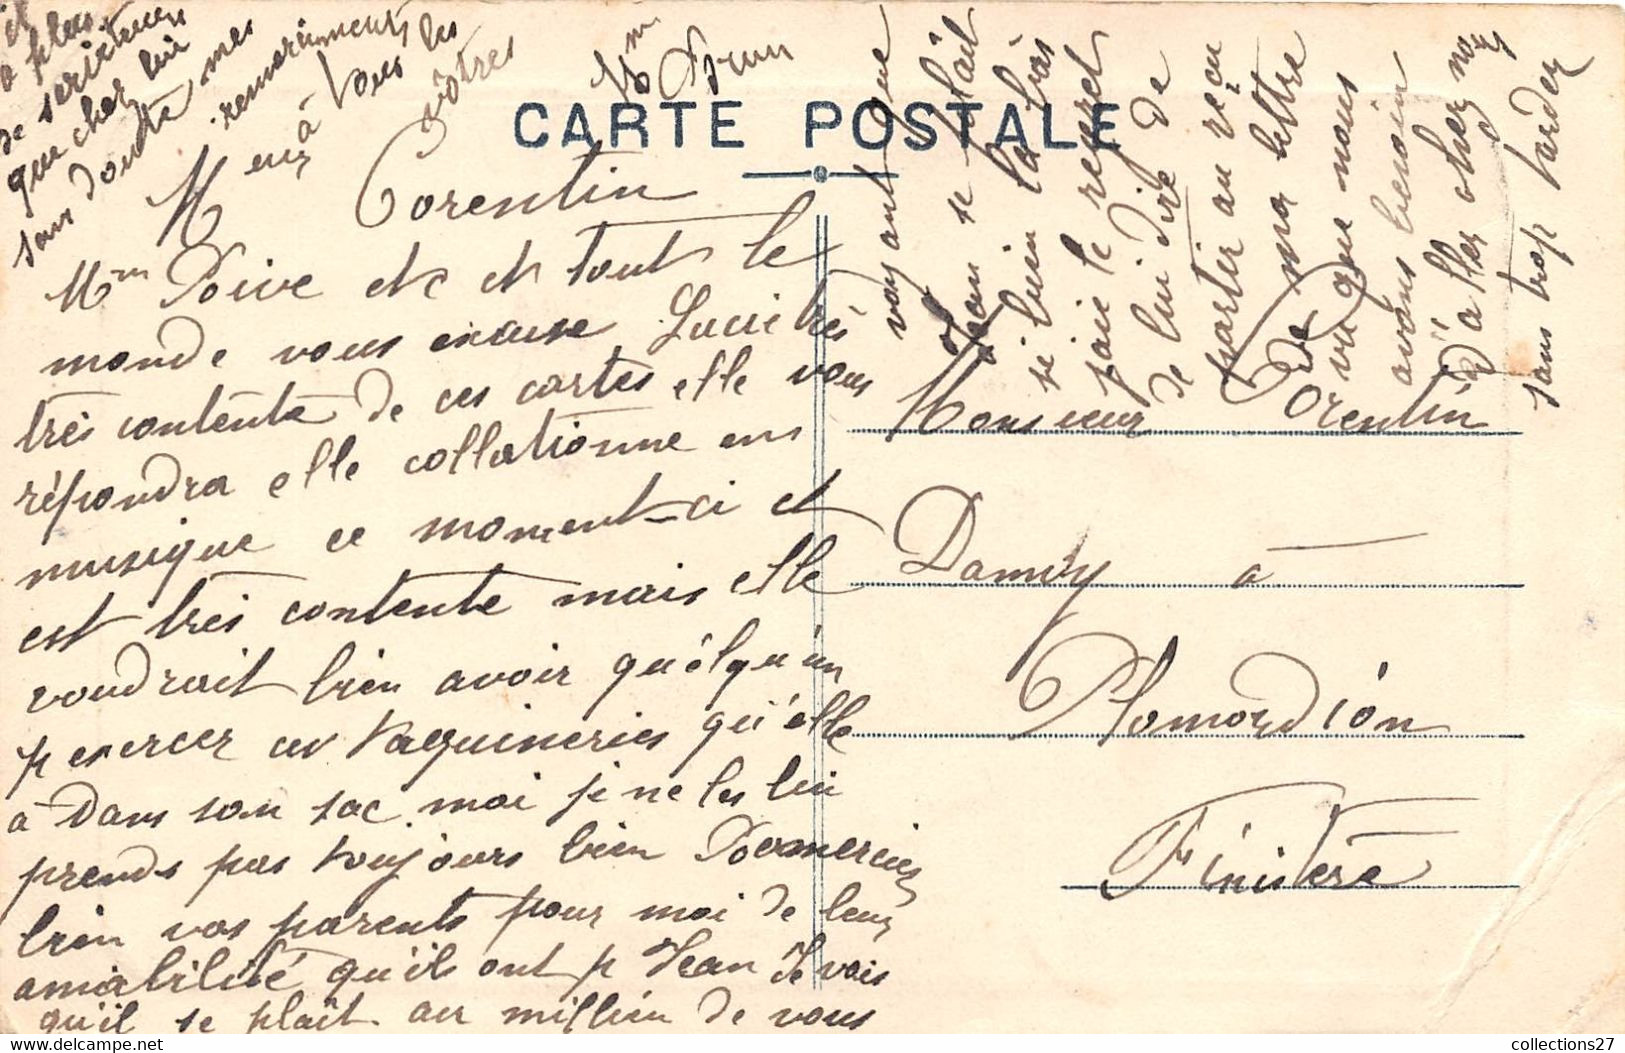 CARTE POSTALE
Meur Corentin
Mme Poive etc et tout le
monde vous excuse Lucie très
très contente de ces cartes elle vous
répondra elle collationne en
musique ce moment-ci et
est très contente mais elle
voudrait bien avoir quélqu'un
p exercer ces taquineries qu'élle
à dans son sac moi je ne les lui
prends pas toujours bien Remerciez
bien vos parents pour moi de leur
amiabilité qu'ils ont p Jean Je vois
qu'il se plaît au millieu de vous
voyant que
Jean se plaît
si bien là bas
j'aie le regret
de lui dire de
partir au reçu
de ma lettre
vu que nous
avons besoin
d'aller chez nous
sans trop tarder
et
a plus
de sérieux
que chez lui
sans doute mes
remerciments
à Vous les
vôtres
Mme Brun
Monsieur Corentin
Damoy à
Plomordión
Finistère
collections27